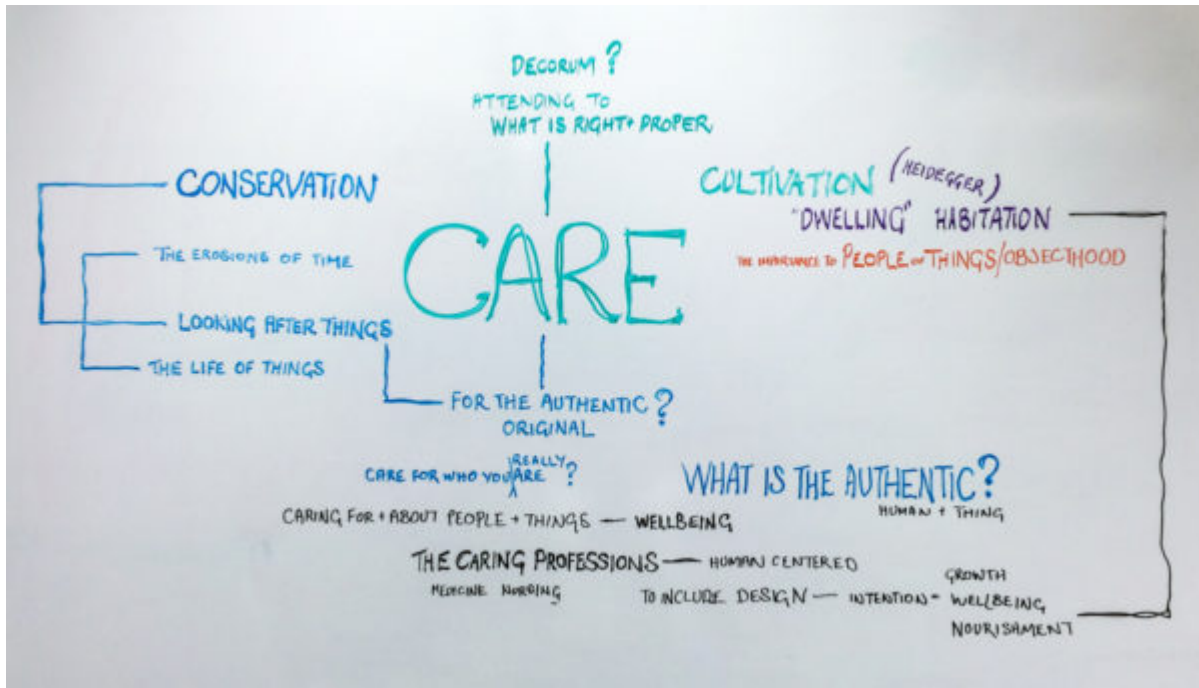 DECORUM ?
ATTENDING TO
WHAT IS RIGHT + PROPER
CONSERVATION
THE EROSIONS OF TIME
LOOKING AFTER THINGS
THE LIFE OF THINGS
CARE
CULTIVATION (HEIDEGGER)
"DWELLING" HABITATION
THE IMPORTANCE TO PEOPLE OF THINGS/OBJECTHOOD
FOR THE AUTHENTIC ?
ORIGINAL
CARE FOR WHO YOU REALLY ARE ?
WHAT IS THE AUTHENTIC ?
HUMAN + THING
CARING FOR + ABOUT PEOPLE + THINGS — WELLBEING
THE CARING PROFESSIONS — HUMAN CENTERED
MEDICINE NURSING
TO INCLUDE DESIGN — INTENTION -
GROWTH
WELLBEING
NOURISHMENT